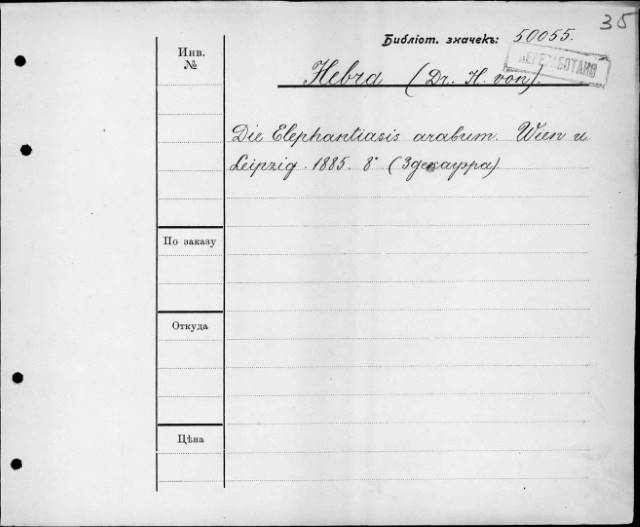 35
Библіот. значекъ: 50055.
ПЕРЕРАБОТАНО
Инв.
№
Hebra (Dr. H. von).
Die Elephantiasis arabum. Wien u
Leipzig. 1885. 8° (3 декабря)
По заказу
Откуда
Цѣна